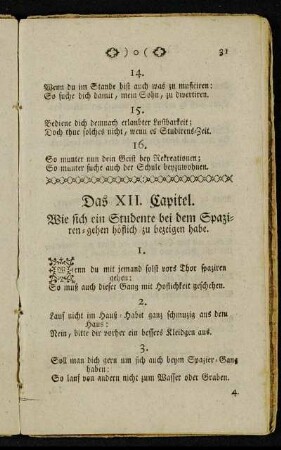 )o( 31
14.
Wenn du im Stande bist auch was zu musiciren:
So suche dich damit, mein Sohn, zu divertiren.
15.
Bediene dich demnach erlaubter Lustbarkeit;
Doch thue solches nicht, wenn es Studirens-Zeit.
16.
So munter nun dein Geist bey Rekreationen;
So munter suche auch der Schule beyzuwohnen.
Das XII. Capitel.
Wie sich ein Studente bei dem Spazi-
ren-gehen höflich zu bezeigen habe.
1.
Wenn du mit jemand solst vors Thor spaziren
gehen:
So muß auch dieser Gang mit Höflichkeit geschehen.
2.
Lauf nicht im Hauß-Habit ganz schmuzig aus dem
Haus:
Nein, bitte dir vorher ein bessers Kleidgen aus.
3.
Soll man dich gern um sich auch beym Spazier-Gang
haben:
So lauf von andern nicht zum Wasser oder Graben.
4.